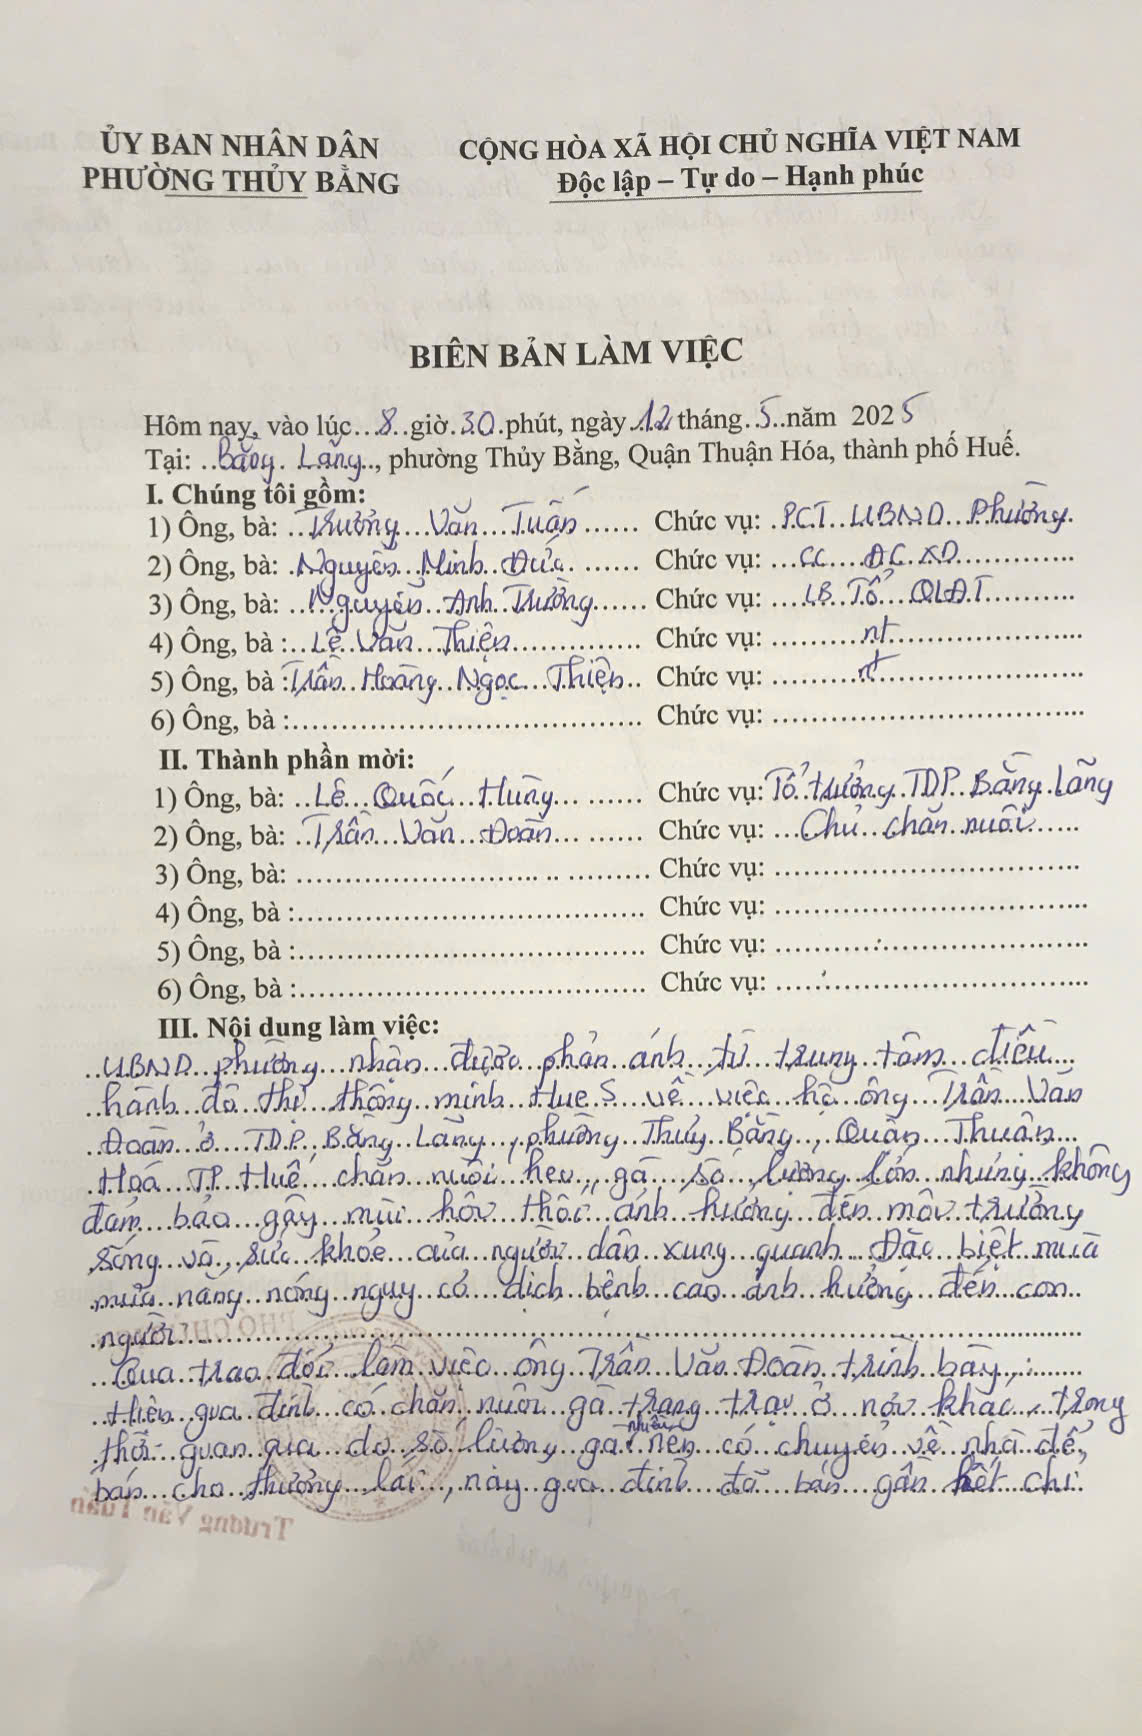 ỦY BAN NHÂN DÂN
PHƯỜNG THỦY BẰNG
CỘNG HÒA XÃ HỘI CHỦ NGHĨA VIỆT NAM
Độc lập – Tự do – Hạnh phúc
BIÊN BẢN LÀM VIỆC
Hôm nay, vào lúc 8 giờ 30 phút, ngày 12 tháng 5 năm 2025
Tại: Bằng Lãng, phường Thủy Bằng, Quận Thuận Hóa, thành phố Huế.
I. Chúng tôi gồm:
1) Ông, bà: Trương Văn Tuấn Chức vụ: PCT UBND Phường.
2) Ông, bà: Nguyễn Minh Đức Chức vụ: CC ĐC XD
3) Ông, bà: Nguyễn Anh Trường Chức vụ: Tổ QLĐT
4) Ông, bà : Lê Văn Thiện Chức vụ: nt
5) Ông, bà : Trần Hoàng Ngọc Thiện Chức vụ: nt
6) Ông, bà : Chức vụ:
II. Thành phần mời:
1) Ông, bà: Lê Quốc Hùng Chức vụ: Tổ trưởng TDP Bằng Lãng
2) Ông, bà: Trần Văn Đoàn Chức vụ: Chủ chăn nuôi
3) Ông, bà: Chức vụ:
4) Ông, bà : Chức vụ:
5) Ông, bà : Chức vụ:
6) Ông, bà : Chức vụ:
III. Nội dung làm việc:
UBND phường nhận được phản ánh từ trung tâm điều
hành đô thị thông minh Hue S về việc hộ ông Trần Văn
Đoàn ở TDP Bằng Lãng, phường Thủy Bằng, Quận Thuận
Hoá TP Huế chăn nuôi heo, gà số lượng lớn nhưng không
đảm bảo gây mùi hôi thối ảnh hưởng đến môi trường
sống và sức khỏe của người dân xung quanh. Đặc biệt mùa
mưa nắng nóng nguy cơ dịch bệnh cao ảnh hưởng đến con
người.
Qua trao đổi làm việc ông Trần Văn Đoàn trình bày:
Hiện gia đình có chăn nuôi gà trang trại ở nơi khác, trong
thời gian qua do số lượng gà nhiều nên có chuyển về nhà để
bán cho thương lái, nay gia đình đã bán gần hết chỉ
Trương Văn Tuấn